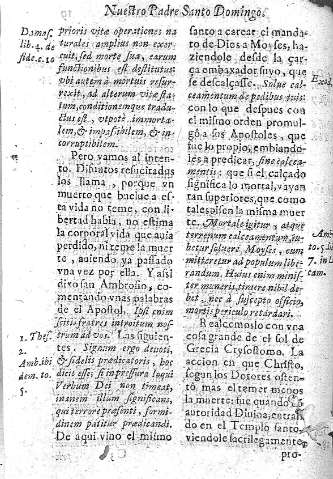 Nuestro Padre Santo Domingo.
Damas.
lib. 4. de
fide. c. 10
prioris vitæ operationes na
turales amplius non exer-
cuit, sed morte sua, earum
functionibus est destitutus:
vbi autem à mortuis resur-
rexit, ad alterum vitæ sta-
tum, conditionemque tradu-
ctus est, vtpotè immorta-
lem, & impasibilem, & in-
corruptibilem.
Pero vamos al inten-
to. Difuntos resucitados
los llama, porque vn
muerto que buelue a es-
ta vida no teme, con li-
bertad habla, no estima
la corporal vida que auia
perdido, ni teme la muer
te, auiendo ya passado
vna vez por ella. Y assi
dixo san Ambrosio, co-
mentando vnas palabras
de el Apostol. Ipsi enim
scitis fratres introitum nos-
trum ad vos. Las siguien-
tes. Signum ergo deuoti,
& fidelis prædicatoris, hoc
dicit esse; si impressura sequi
Verbum Dei non timeat,
inanem illum significans,
qui terrore præsenti, formi-
dinem patitur prædicandi.
De aqui vino el mismo
1. Thes.
2.
Amb. ibi
dem. to.
5.
santo a carear el manda-
to de Dios a Moyses, ha-
ziendole desde la çar-
ça embaxador suyo, que
se descalçasse. Solue cal-
ceamentum de pedibus tuis:
con lo que despues con
el mismo orden promul-
gó a sus Apostoles, que
fue lo propio, embiando-
les a predicar, sine calcea-
mentis: que si el calçado
significa lo mortal, vayan
tan superiores, que como
tales pisen la misma muer
te. Mortale igitur, atque
terrenum calceamentum, iu-
betur soluere Moyses, cum
mitteretur ad populum libe-
randum. Huius enim minis-
ter muneris, timere nihil de-
bet, nec à suscepto officio,
mortis periculo retardari.
Realcemoslo con vna
cosa grande de el sol de
Grecia Crysostomo. La
accion en que Christo,
segun los Dotores osten-
tó mas el temer menos
la muerte: fue quando cō
autoridad Diuina, entran
do en el Templo santo,
viendole sacrilegamente
pro-
Exod.
7. in